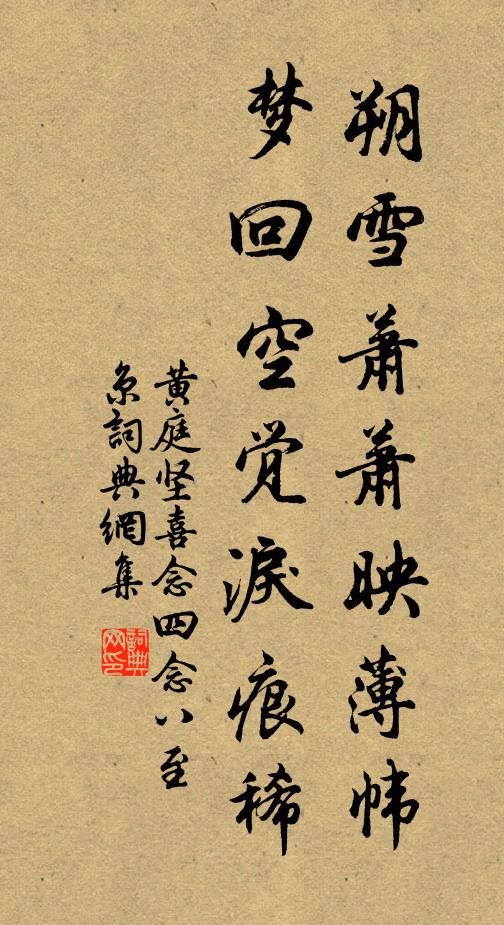 朔雪萧萧映薄帏
梦回空觉淚痕稀
黄庭坚喜念四念八至
京詞典網集
詞典
网印